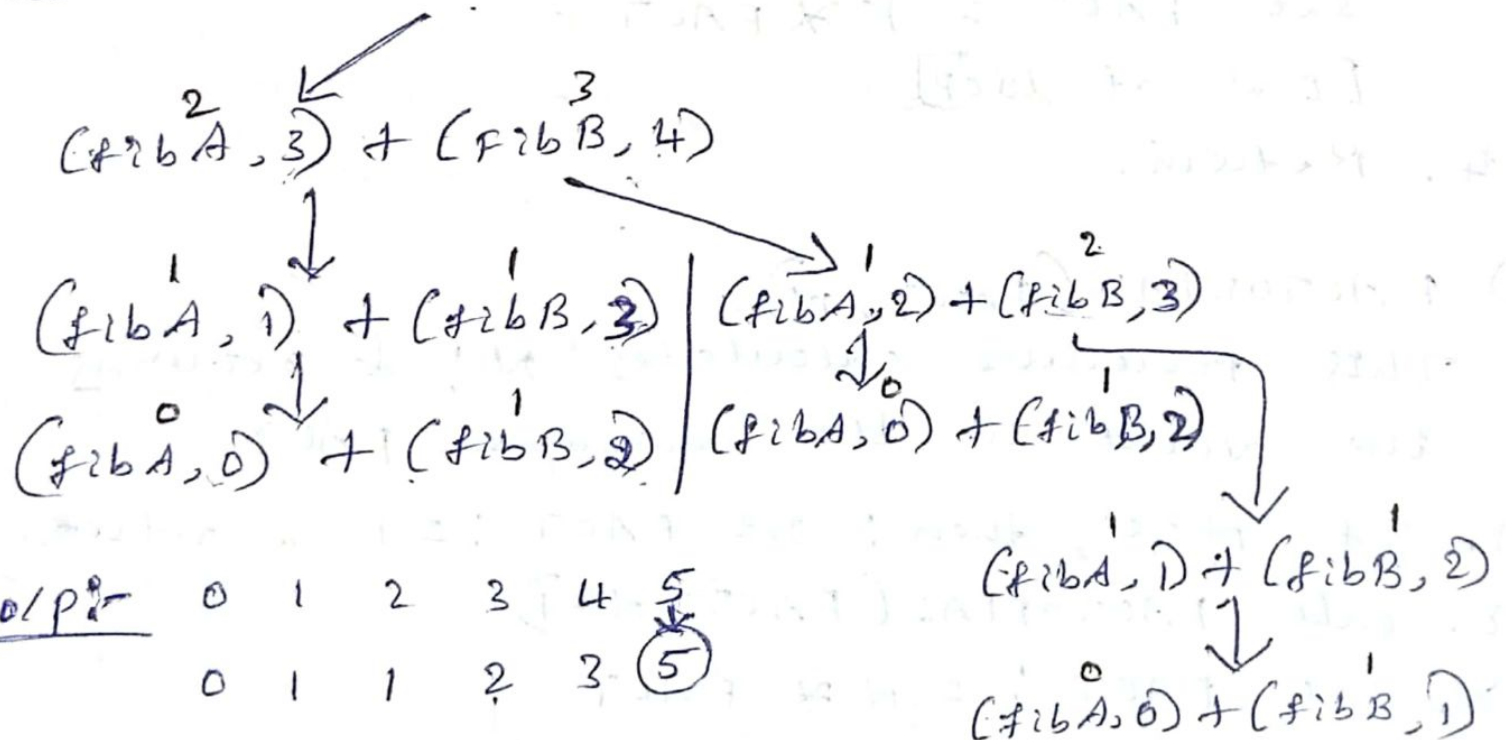 2 3
(fibA, 3) + (FibB, 4)
1 1 1 2
(fibA, 1) + (fibB, 3) | (fibA, 2) + (fibB, 3)
0 1 0 1
(fibA, 0) + (fibB, 2) | (fibA, 0) + (fibB, 2)
1 1
(fibA, 1) + (fibB, 2)
0 1
(fibA, 0) + (fibB, 1)
o/p:- 0 1 2 3 4 5
0 1 1 2 3 5